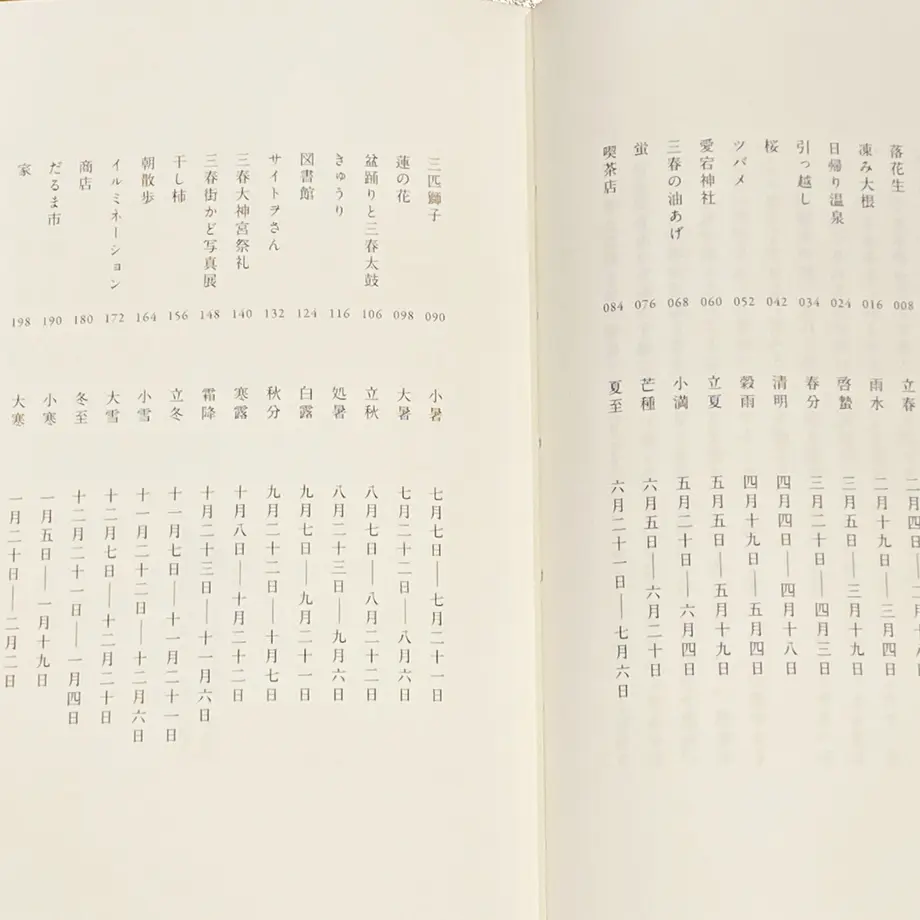 落花生 008 立春 二月四日——二月十八日
凍み大根 016 雨水 二月十九日——三月四日
日帰り温泉 024 啓蟄 三月五日——三月十九日
引っ越し 034 春分 三月二十日——四月三日
桜 042 清明 四月四日——四月十八日
ツバメ 052 穀雨 四月十九日——五月四日
愛宕神社 060 立夏 五月五日——五月十九日
三春の油あげ 068 小満 五月二十日——六月四日
蛍 076 芒種 六月五日——六月二十日
喫茶店 084 夏至 六月二十一日——七月六日
三匹獅子 090 小暑 七月七日——七月二十一日
蓮の花 098 大暑 七月二十二日——八月六日
盆踊りと三春太鼓 106 立秋 八月七日——八月二十二日
きゅうり 116 処暑 八月二十三日——九月六日
図書館 124 白露 九月七日——九月二十一日
サイトヲさん 132 秋分 九月二十二日——十月七日
三春大神宮祭礼 140 寒露 十月八日——十月二十二日
三春街かど写真展 148 霜降 十月二十三日——十一月六日
干し柿 156 立冬 十一月七日——十一月二十一日
朝散歩 164 小雪 十一月二十二日——十二月六日
イルミネーション 172 大雪 十二月七日——十二月二十日
商店 180 冬至 十二月二十一日——一月四日
だるま市 190 小寒 一月五日——一月十九日
家 198 大寒 一月二十日——二月二日